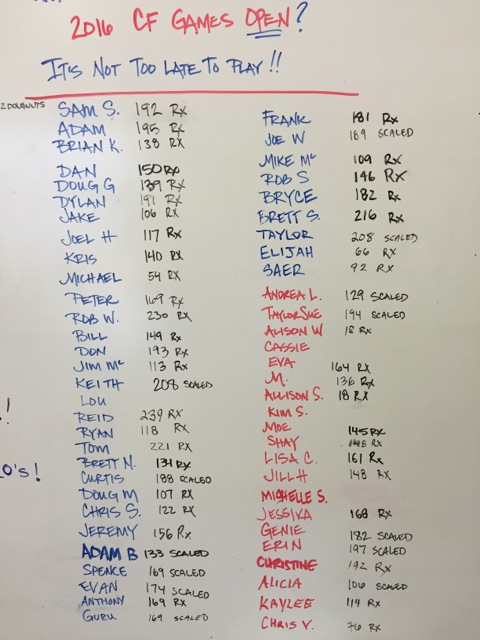 2016 CF GAMES OPEN?
IT'S NOT TOO LATE TO PLAY!!
2 DOUGNUTS
SAM S. 192 RX
ADAM 195 RX
BRIAN K. 138 RX
DAN 150 RX
DOUG G 139 RX
DYLAN 191 RX
JAKE 106 RX
JOEL H 117 RX
KRIS 140 RX
MICHAEL 54 RX
PETER 169 RX
ROB W. 230 RX
BILL 149 RX
DON 193 RX
JIM Mc 113 RX
KEITH 208 SCALED
LOU
!
REID 239 RX
RYAN 118 RX
TOM 221 RX
BRETT N. 134 RX
O'S!
CURTIS 188 SCALED
DOUG M 107 RX
CHRIS S. 122 RX
JEREMY 156 RX
ADAM B 133 SCALED
SPENCE 169 SCALED
EVAN 174 SCALED
ANTHONY 169 RX
GURU 169 SCALED
FRANK 181 RX
JOE W 189 SCALED
MIKE Mc 109 RX
ROB S 146 RX
BRYCE 182 RX
BRETT S. 216 RX
TAYLOR 208 SCALED
ELIJAH 66 RX
SAER 92 RX
ANDREA L. 129 SCALED
TAYLORSUE 194 SCALED
ALISON W 18 RX
CASSIE
EVA 164 RX
M. 136 RX
ALLISON S. 18 RX
KIM S.
MOE 145 RX
SHAY RX
LISA C. 161 RX
JILL H 148 RX
MICHELLE S.
JESSIKA 168 RX
GENIE 182 SCALED
ERIN 197 SCALED
CHRISTINE 192 RX
ALICIA 106 SCALED
KAYLEE 114 RX
CHRIS V. 76 RX